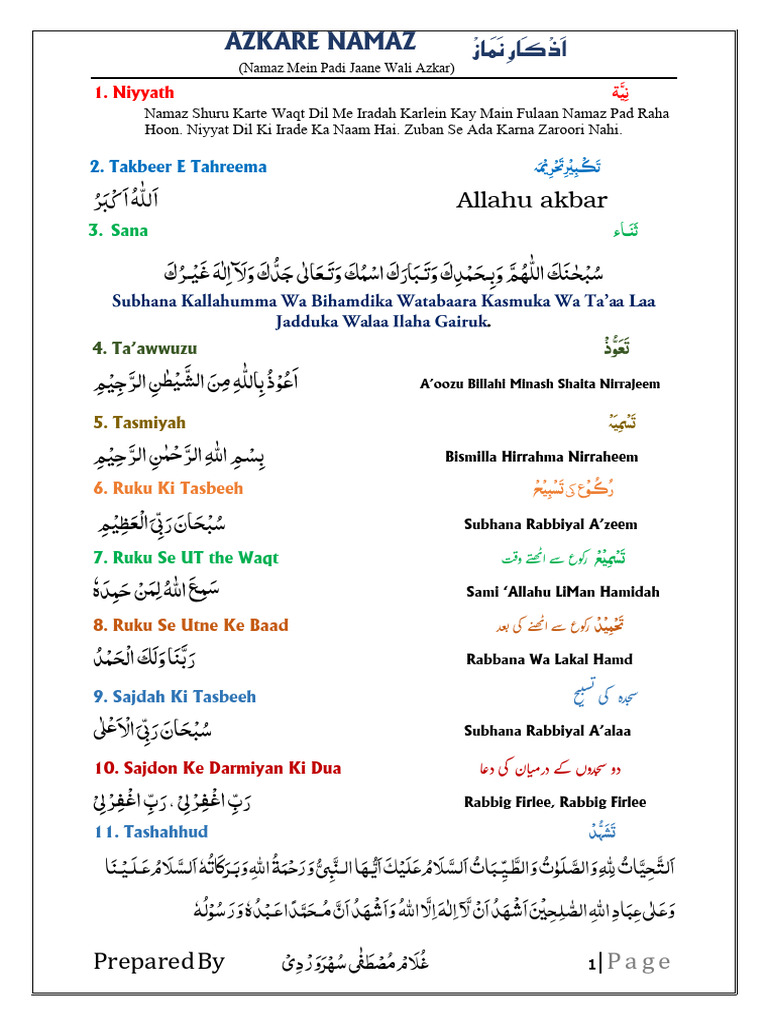 AZKARE NAMAZ اَذْكَارِ نَمَازْ
(Namaz Mein Padi Jaane Wali Azkar)
1. Niyyath نِيَّة
Namaz Shuru Karte Waqt Dil Me Iradah Karlein Kay Main Fulaan Namaz Pad Raha
Hoon. Niyyat Dil Ki Irade Ka Naam Hai. Zuban Se Ada Karna Zaroori Nahi.
2. Takbeer E Tahreema تَكْبِيْرِ تَحْرِيْمَہ
اَللّٰهُ اَكْبَرُ Allahu akbar
3. Sana ثَنَاء
سُبْحٰنَكَ اللّٰهُمَّ وَبِحَمْدِكَ وَتَبَارَكَ اسْمُكَ وَتَعَالٰى جَدُّكَ وَلَآ اِلٰهَ غَيْرُكَ
Subhana Kallahumma Wa Bihamdika Watabaara Kasmuka Wa Ta’aa Laa
Jadduka Walaa Ilaha Gairuk.
4. Ta’awwuzu تَعَوُّذْ
اَعُوْذُ بِاللّٰهِ مِنَ الشَّيْطٰنِ الرَّجِيْمِ A’oozu Billahi Minash Shaita Nirrajeem
5. Tasmiyah تَسْمِيَہْ
بِسْمِ اللّٰهِ الرَّحْمٰنِ الرَّحِيْمِ Bismilla Hirrahma Nirraheem
6. Ruku Ki Tasbeeh رُكُوْع کی تَسْبِيْحْ
سُبْحَانَ رَبِّیَ الْعَظِيْمِ Subhana Rabbiyal A’zeem
7. Ruku Se UT the Waqt تَسْمِيْعْ رکوع سے اٹھتے وقت
سَمِعَ اللّٰهُ لِمَنْ حَمِدَهٗ Sami ‘Allahu LiMan Hamidah
8. Ruku Se Utne Ke Baad تَحْمِيْدْ رکوع سے اٹھنے کی بعد
رَبَّنَا وَلَكَ الْحَمْدُ Rabbana Wa Lakal Hamd
9. Sajdah Ki Tasbeeh سجدہ کی تسبیح
سُبْحَانَ رَبِّیَ الْاَعْلٰى Subhana Rabbiyal A’alaa
10. Sajdon Ke Darmiyan Ki Dua دو سجدوں کے درمیان کی دعا
رَبِّ اغْفِرْلِیْ، رَبِّ اغْفِرْلِیْ Rabbig Firlee, Rabbig Firlee
11. Tashahhud تَشَہُّدْ
اَلتَّحِيَّاتُ لِلّٰهِ وَالصَّلَوٰتُ وَالطَّيِّبَاتُ اَلسَّلَامُ عَلَيْكَ اَيُّهَا النَّبِیُّ وَرَحْمَةُ اللّٰهِ وَبَرَكَاتُهٗ اَلسَّلَامُ عَلَيْنَا
وَعَلٰى عِبَادِ اللّٰهِ الصّٰلِحِيْنَ اَشْهَدُ اَنْ لَّآ اِلٰهَ اِلَّا اللّٰهُ وَاَشْهَدُ اَنَّ مُحَمَّدًا عَبْدُهٗ وَرَسُوْلُهٗ
Prepared By غُلَامْ مُصْطَفٰى سُهْرَوَرْدِیْ 1 | Page